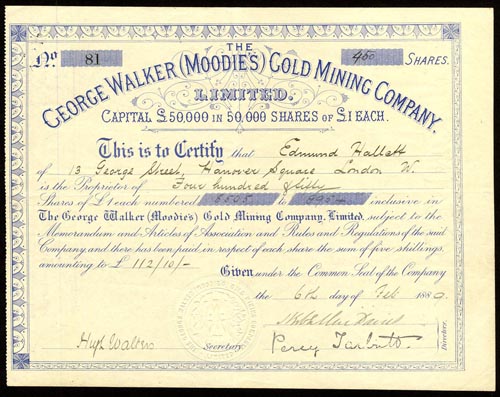 No. 81
450 SHARES.
THE
GEORGE WALKER (MOODIE'S) GOLD MINING COMPANY,
LIMITED.
CAPITAL £50,000 IN 50,000 SHARES OF £1 EACH.
This is to Certify that Edmund Hallett
of 13 George Street, Hanover Square London W.
is the Proprietor of Four hundred & fifty
Shares of £1 each numbered to inclusive in
The George Walker (Moodie's) Gold Mining Company, Limited, subject to the
Memorandum and Articles of Association and Rules and Regulations of the said
Company, and there has been paid in respect of each share the sum of five shillings,
amounting to £ 112/10/-
Given under the Common Seal of the Company
the 6th day of Feb 188
Hugh Walters
Secretary
Percy Tarbutt
Directors.